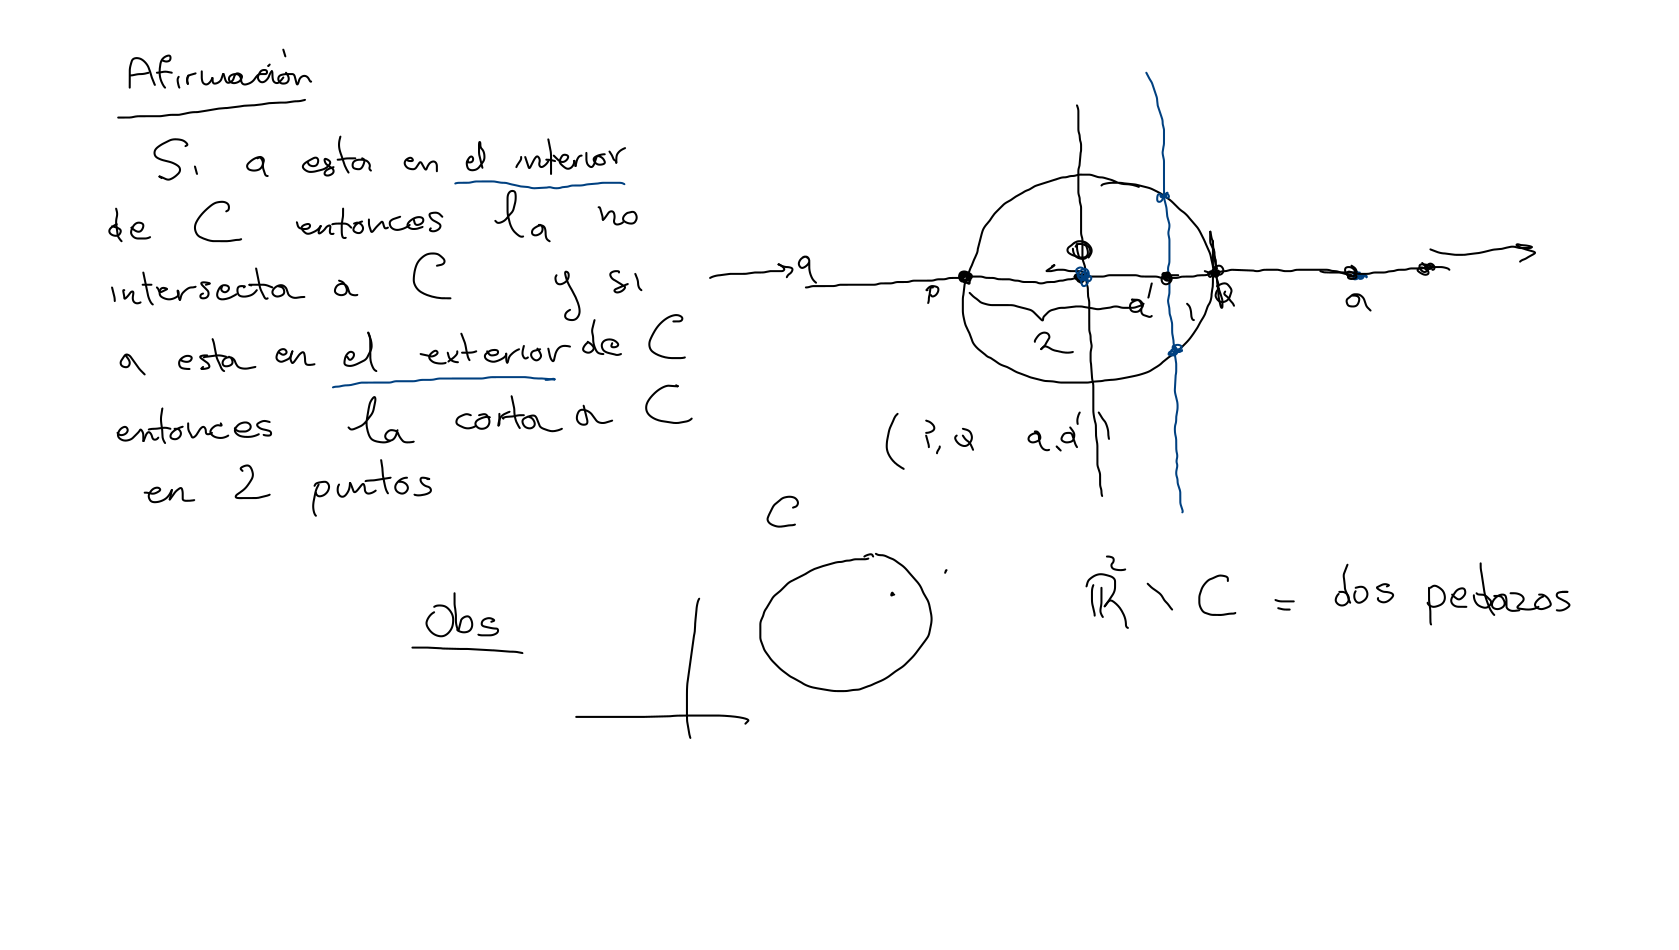 Afirmación
Si a esta en el interior
de C entonces la no
intersecta a C y si
a esta en el exterior de C
entonces la corta a C
en 2 puntos
q
P a' Q a
2
(P, Q a, a')
C
Obs
ℝ² \ C = dos pedazos